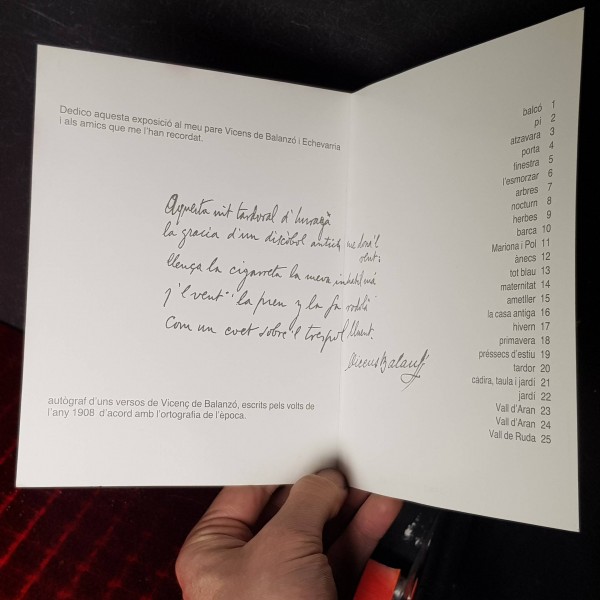 Dedico aquesta exposició al meu pare Vicens de Balanzó i Echevarria
i als amics que me l'han recordat.
Aquesta nit tardoral d'hurracà
la gracia d'un discòbol antich me dona'l
vent:
llença la cigarreta la meva inhabil mà
j'l vent la pren y la fa rodolà
Com un cuet sobre'l trespol lluent.
Vicens Balanzó
autògraf d'uns versos de Vicenç de Balanzó, escrits pels volts de
l'any 1908 d'acord amb l'ortografia de l'època.
balcó 1
pi 2
atzavara 3
porta 4
finestra 5
l'esmorzar 6
arbres 7
nocturn 8
herbes 9
barca 10
Mariona i Pol 11
ànecs 12
tot blau 13
maternitat 14
ametller 15
la casa antiga 16
hivern 17
primavera 18
préssecs d'estiu 19
tardor 20
cadira, taula i jardí 21
jardí 22
Vall d'Aran 23
Vall d'Aran 24
Vall de Ruda 25